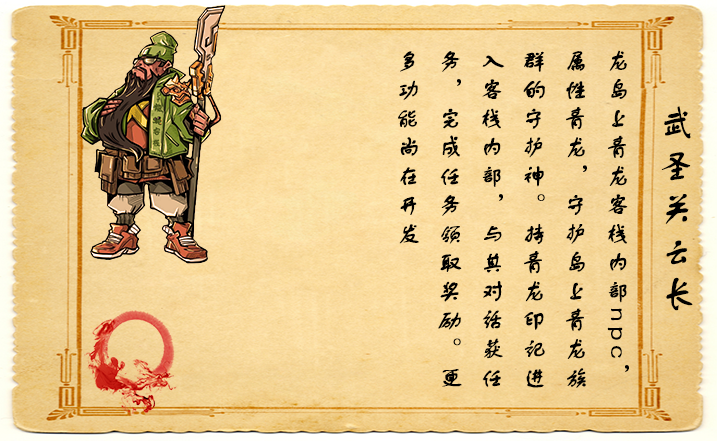 武圣关云长
龙岛上青龙客栈内部npc，
属性青龙，守护岛上青龙族
群的守护神。持青龙印记进
入客栈内部，与其对话获任
务，完成任务领取奖励。更
多功能尚在开发